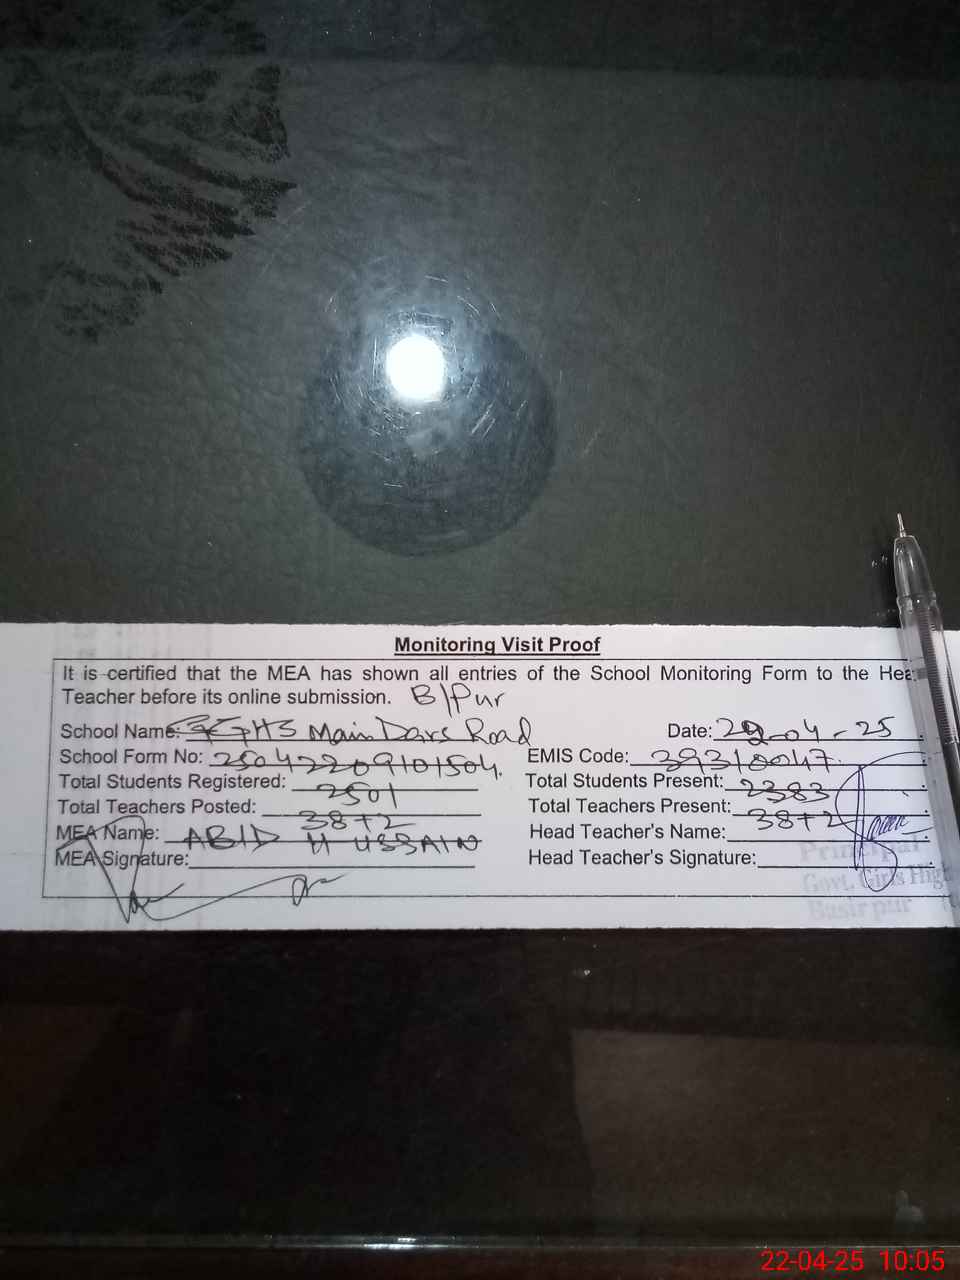 Monitoring Visit Proof
It is certified that the MEA has shown all entries of the School Monitoring Form to the Hea
Teacher before its online submission. B/Pur
School Name: GGHS Main Dars Road Date: 22-04-25
School Form No: 25042209101504 EMIS Code: 39310047
Total Students Registered: 2501 Total Students Present: 2383
Total Teachers Posted: 38+2 Total Teachers Present: 38+2
MEA Name: ABID HUSSAIN Head Teacher's Name:
MEA Signature: Head Teacher's Signature:
Principal
Govt. Girls High
Basirpur
22-04-25 10:05